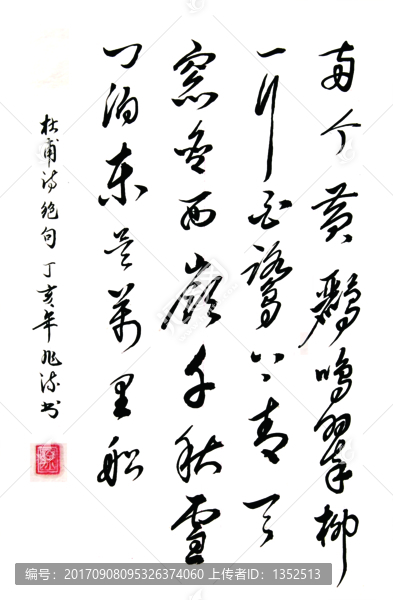 两个黄鸝鳴翠柳
一行白鷺上青天
窓含西嶺千秋雪
门泊東吴萬里船
杜甫诗绝句丁亥年兆书
编号:20170908095326374060 上传者ID:1352513